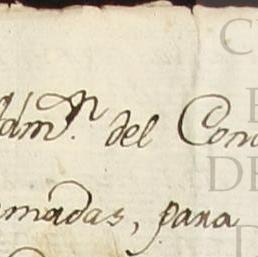 Adm.ⁿ del Con
madas, para